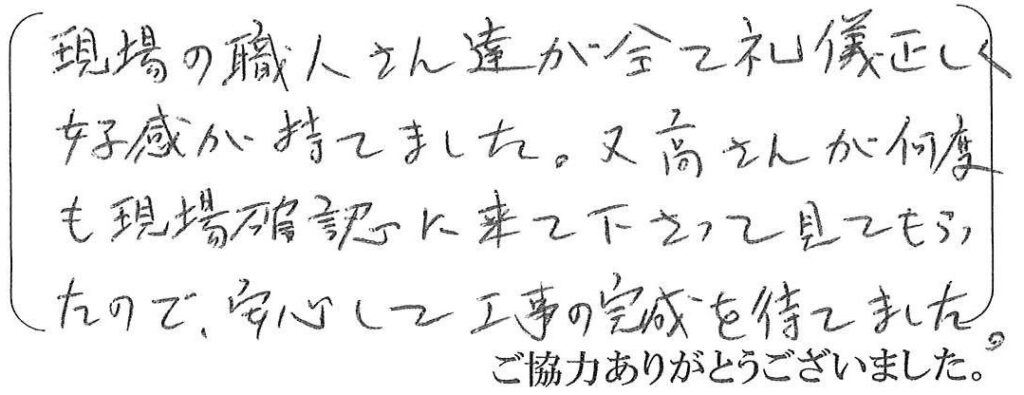 現場の職人さん達が全て礼儀正しく
好感が持てました。又高さんが何度
も現場確認に来て下さって見てもらっ
たので、安心して工事の完成を待てました。
ご協力ありがとうございました。